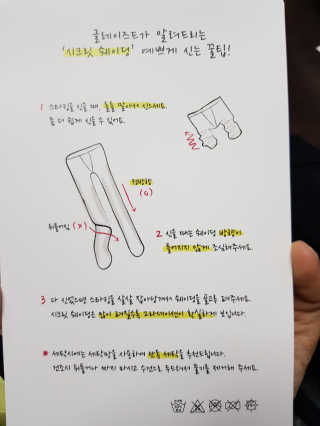 글레이즈드가 알려드리는
'시크릿 쉐이딩' 예쁘게 신는 꿀팁!
1 스타킹을 신을 때, 돌돌 말아서 신으세요.
좀 더 쉽게 신을 수 있어요.
정방향
(O)
뒤틀어짐 (X)
2 신을 때는 쉐이딩 방향이
틀어지지 않게 조심해주세요.
3 다 신었으면 스타킹을 살살 잡아당겨서 쉐이딩을 골고루 펴주세요.
시크릿 쉐이딩은 많이 펴질수록 그라데이션이 확실하게 보입니다.
* 세탁시에는 세탁망을 사용하여 단독 세탁을 추천드립니다.
건조시 비틀거나 짜지 마시고 수건으로 두드려서 물기를 제거해 주세요.